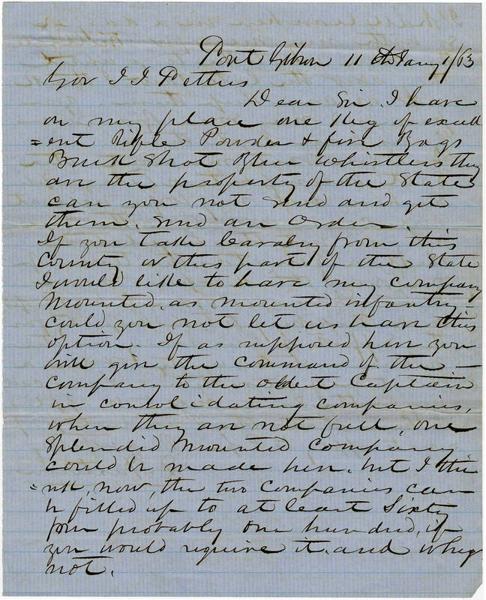 Port Gibson 11th Jany 1/63
Gov J J Pettus
Dear Sir I have
on my place one Keg of excell
=ent Rifle Powder & five Bags
Buck Shot Blue Whistlers they
are the property of the State
can you not send and get
them. Send an Order.
If you take Cavalry from this
County or this part of the State
I would like to have my company
Mounted, as mounted infantry
could you not let us have this
option. If as supposed here you
will give the command of the
company to the oldest Captain
in consolidating companies,
when they are not full, one
Splendid Mounted Company
could be made here. but I thi
=nk now, the two companies can
be filled up to at least Sixty
four probably one hundred, if
you would require it. and why
not.